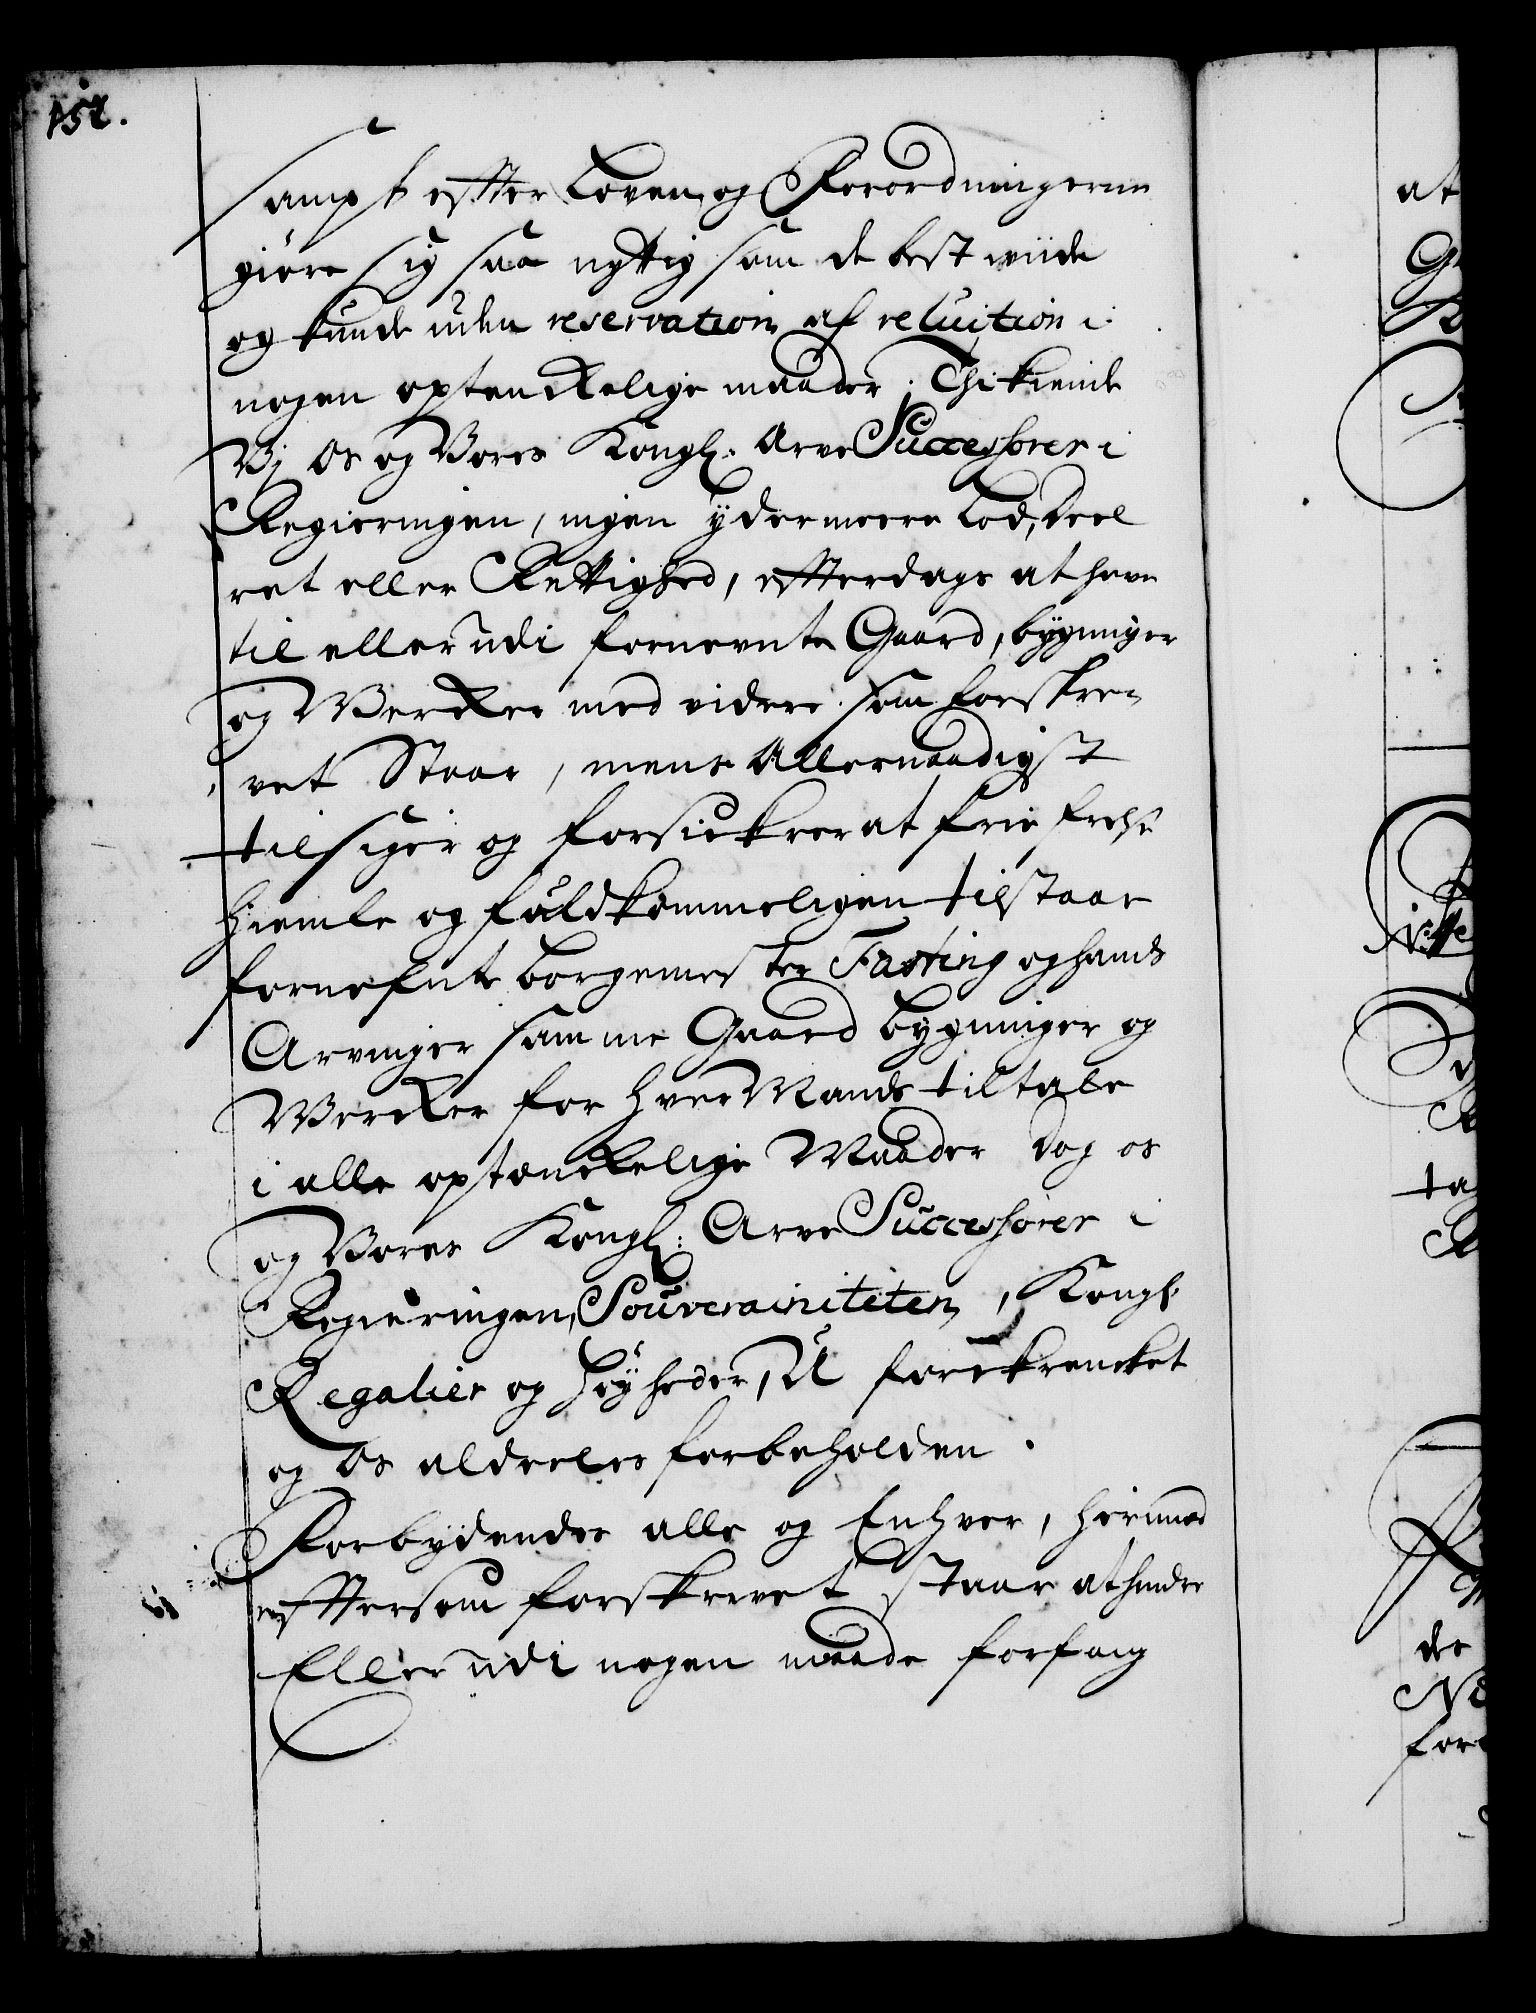 152.
sampt effter Loven og Forordningerne
giøre sig saa nyttig som de best viide
og kunde uden reservation af reluition i
nogen optenckelige maader; Thi kiende
Vj Os og Vores Kongl: Arve Successorer i
Regieringen, ingen ydermeere Lod, Deel
ret eller Rettighed, effterdags at have
til eller udi fornevnte Gaard, bygninger
og Vercker med videre som forskre-
vet Staar, mens Allernaadigst
tilsiger og forsickrer at frie frelse
hiemle og fuldkommeligen tilstaar
fornefnte borgemester Fasting og hands
Arvinger samme Gaard bygninger og
Vercker for hver Mands tiltale
i alle optænckelige Maader Dog os
og Vores Kongl: Arve Successorer i
Regieringen, Souverainiteten, Kongl:
Regalier og Høyheder, U forekrencket
og Os aldeeles forbeholden.
Forbydendes alle og Enhver, herimod
efftersom forskrevet staar at hindre
Eller udi nogen maade forfang
at
ta
de
for